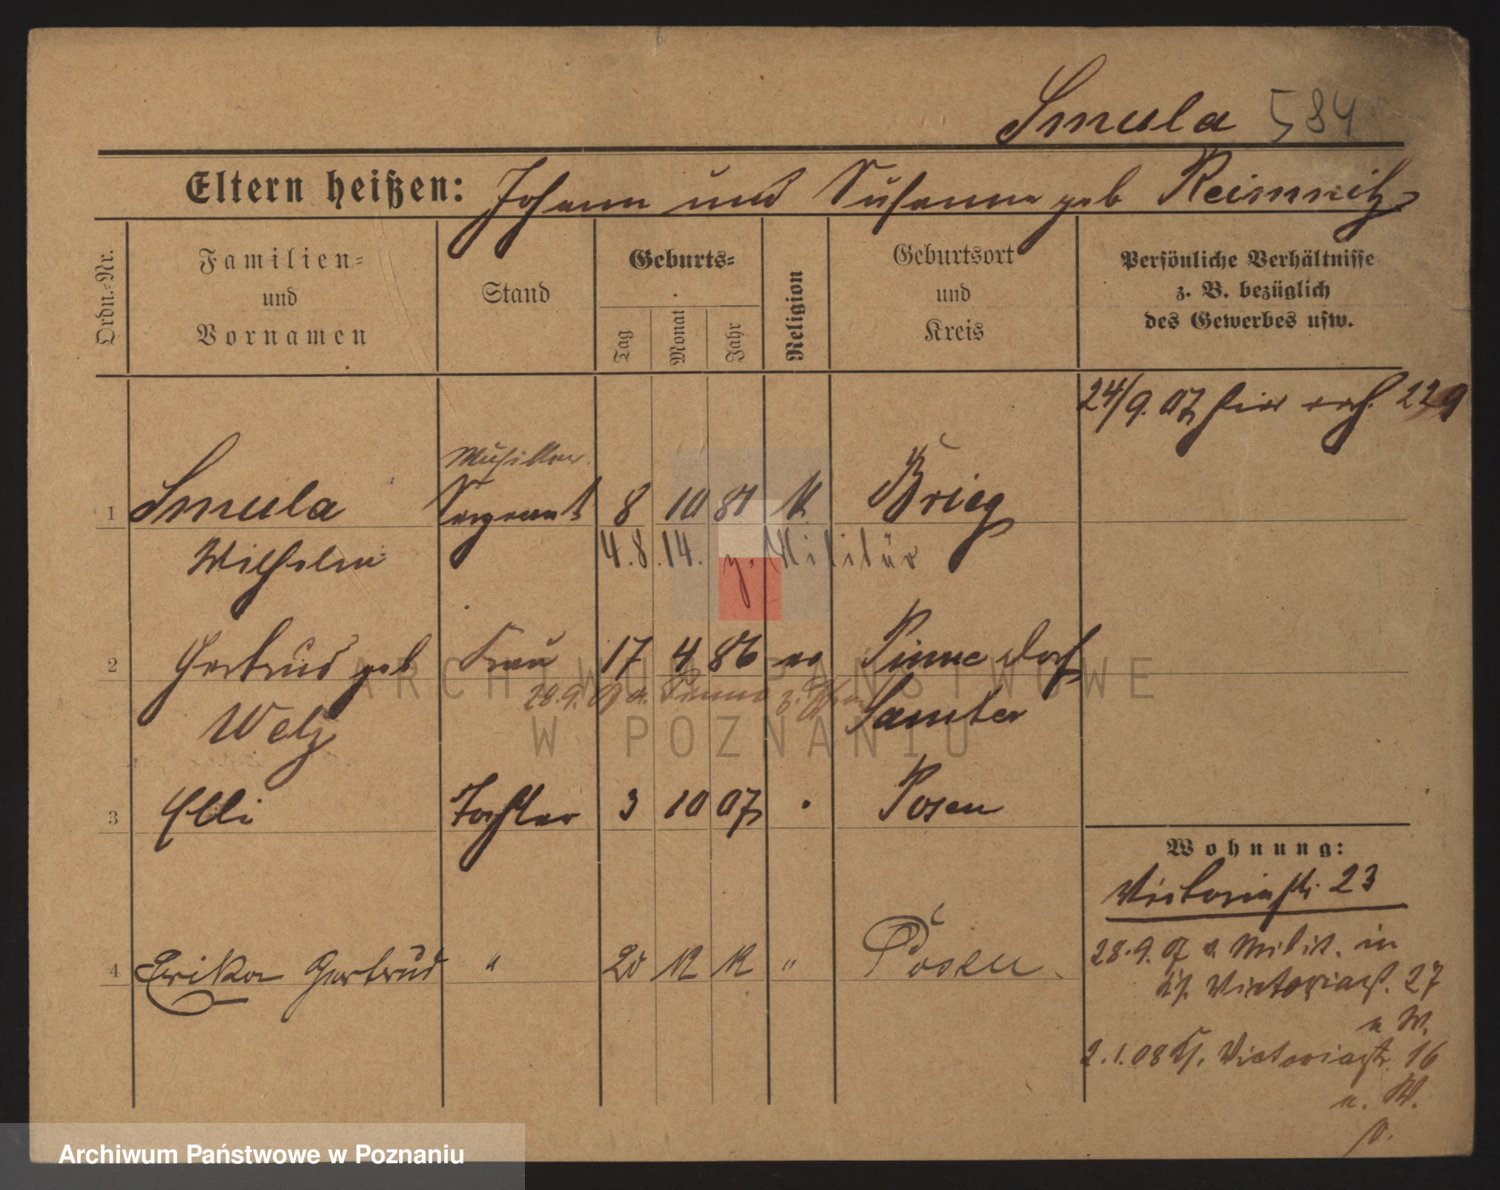 Smula 584
Eltern heißen: Johann und Susanna geb Reimnitz
Ordn.-Nr.
Familien- und Vornamen
Stand
Geburts-
Tag
Monat
Jahr
Religion
Geburtsort und Kreis
Persönliche Verhältnisse
z. B. bezüglich
des Gewerbes usw.
24/9. 07 hier 229
1 Smula Sergeant 8 10 81 K Brieg
Wilhelm 4.8.14. z. Militär
2 Gertrud geb Frau 17 4 86 ev Pinne Dorf
28.9. 07 a. Pinne
Welz Samter
3 Elli Tochter 3 10 07 Posen
Wohnung:
Victoriastr. 23
4 Erika Gertrud " 20 12 12 " Posen.
28.9.07 a Milit. in
Victoriastr. 27
a W.
2.1.08 Victoriastr. 16
a. W.
ARCHIWUM PAŃSTWOWE
W POZNANIU
Archiwum Państwowe w Poznaniu